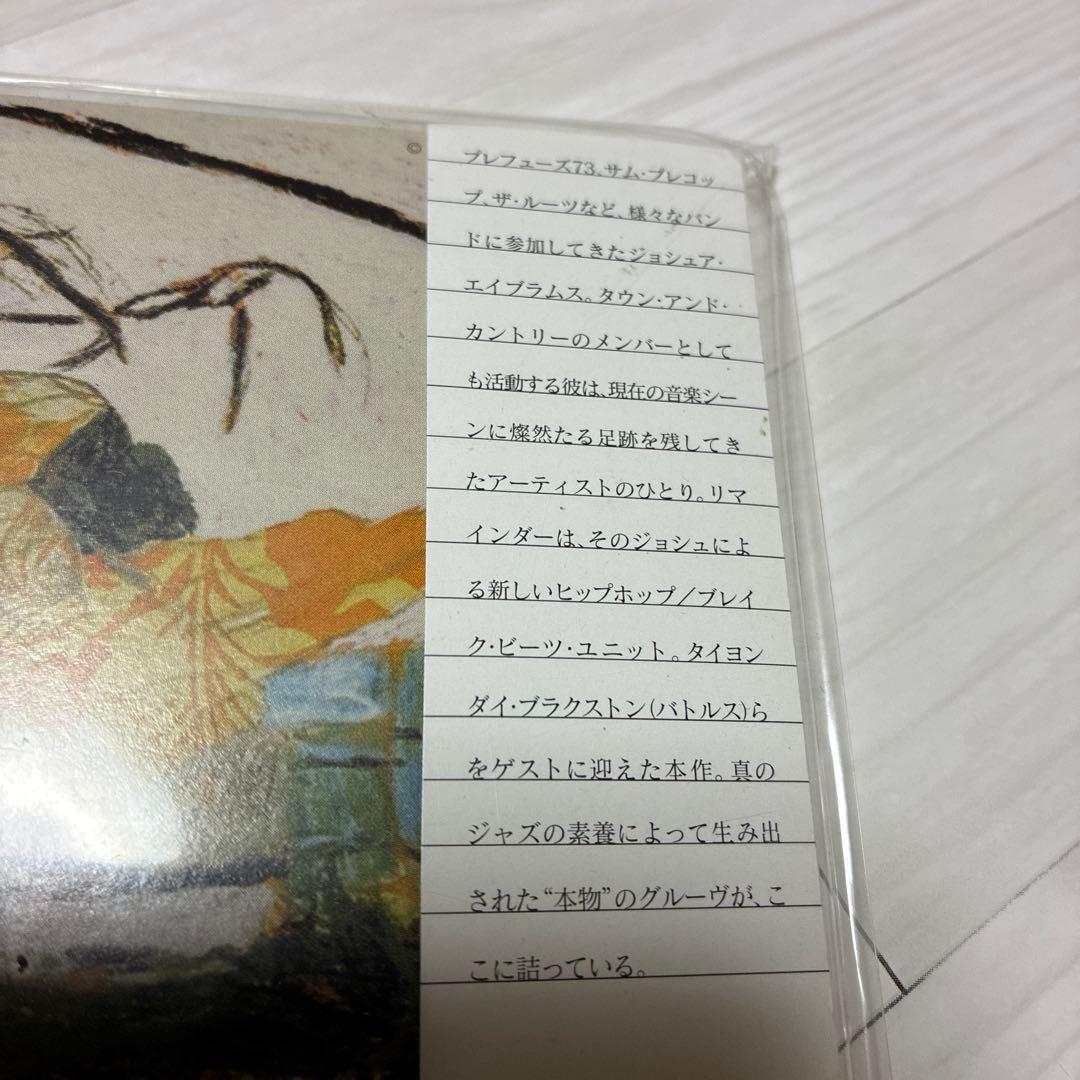 ©
プレフューズ73、サム・プレコッ
プ、ザ・ルーツなど、様々なバン
ドに参加してきたジョシュア・
エイブラムス。タウン・アンド・
カントリーのメンバーとして
も活動する彼は、現在の音楽シー
ンに燦然たる足跡を残してき
たアーティストのひとり。リマ
インダーは、そのジョシュによ
る新しいヒップホップ／ブレイ
ク・ビーツ・ユニット。タイヨン
ダイ・ブラクストン(バトルス)ら
をゲストに迎えた本作。真の
ジャズの素養によって生み出
された“本物”のグルーヴが、こ
こに詰っている。